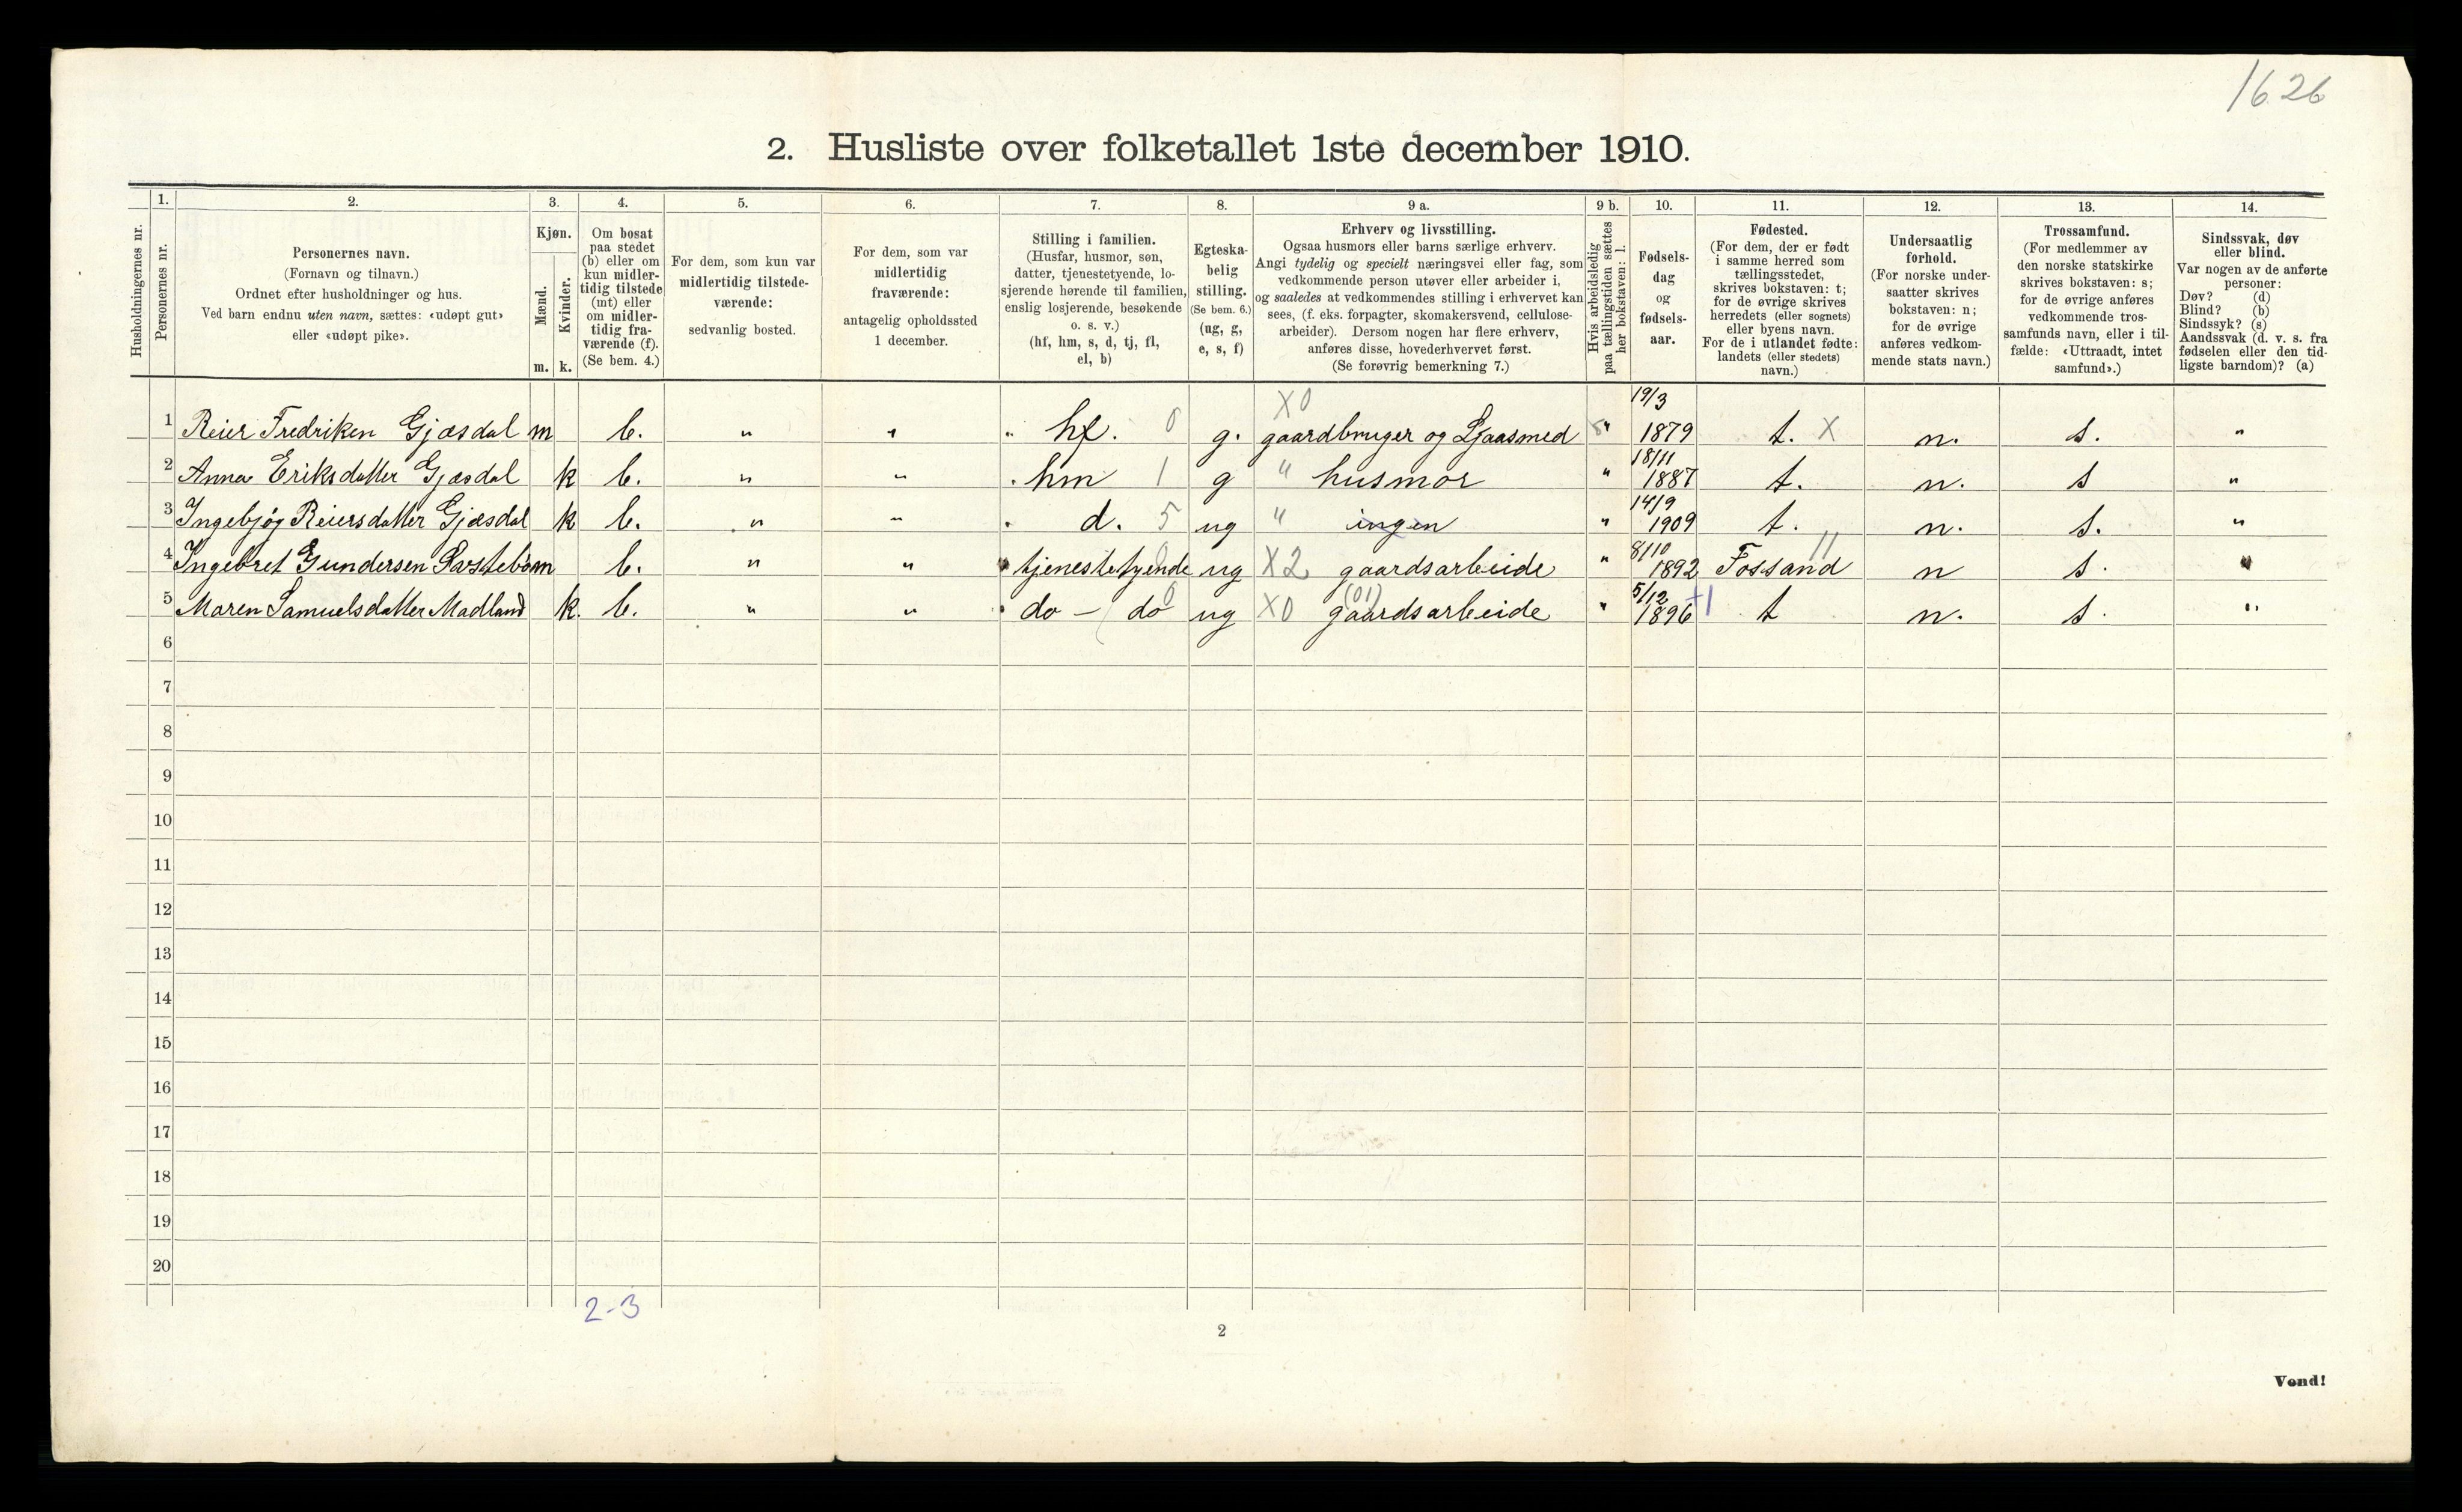 1626
2. Husliste over folketallet 1ste december 1910.
Husholdningernes nr.
1.
Personernes nr.
2.
Personernes navn.
(Fornavn og tilnavn.)
Ordnet efter husholdninger og hus.
Ved barn endnu uten navn, sættes: «udøpt gut»
eller «udøpt pike».
3.
Kjøn.
Mænd.
Kvinder.
m. k.
4.
Om bosat
paa stedet
(b) eller om
kun midler-
tidig tilstede
(mt) eller
om midler-
tidig fra-
værende (f).
(Se bem. 4.)
5.
For dem, som kun var
midlertidig tilstede-
værende:
sedvanlig bosted.
6.
For dem, som var
midlertidig
fraværende:
antagelig opholdssted
1 december.
7.
Stilling i familien.
(Husfar, husmor, søn,
datter, tjenestetyende, lo-
sjerende hørende til familien,
enslig losjerende, besøkende
o. s. v.)
(hf, hm, s, d, tj, fl,
el, b)
8.
Egteska-
belig
stilling.
(Se bem. 6.)
(ug, g,
e, s, f)
9 a.
Erhverv og livsstilling.
Ogsaa husmors eller barns særlige erhverv.
Angi tydelig og specielt næringsvei eller fag, som
vedkommende person utøver eller arbeider i,
og saaledes at vedkommendes stilling i erhvervet kan
sees, (f. eks. forpagter, skomakersvend, cellulose-
arbeider). Dersom nogen har flere erhverv,
anføres disse, hovederhvervet først.
(Se forøvrig bemerkning 7.)
9 b.
Hvis arbeidsledig
paa tællingstiden sættes
her bokstaven: l.
10.
Fødsels-
dag
og
fødsels-
aar.
11.
Fødested.
(For dem, der er født
i samme herred som
tællingsstedet,
skrives bokstaven: t;
for de øvrige skrives
herredets (eller sognets)
eller byens navn.
For de i utlandet fødte:
landets (eller stedets)
navn.)
12.
Undersaatlig
forhold.
(For norske under-
saatter skrives
bokstaven: n;
for de øvrige
anføres vedkom-
mende stats navn.)
13.
Trossamfund.
(For medlemmer av
den norske statskirke
skrives bokstaven: s;
for de øvrige anføres
vedkommende tros-
samfunds navn, eller i til-
fælde: «Uttraadt, intet
samfund».)
14.
Sindssvak, døv
eller blind.
Var nogen av de anførte
personer:
Døv? (d)
Blind? (b)
Sindssyk? (s)
Aandssvak (d. v. s. fra
fødselen eller den tid-
ligste barndom)? (a)
1 Reier Fredriken Gjæsdal m b. " " hf. 0 g. X0 gaardbruger og Ljaasmed " 19/3 1879 t. X n. s. "
2 Anna Eriksdatter Gjæsdal k b. " " hm 1 g " husmor " 18/11 1887 t. n. s "
3 Ingebjøg Reiersdatter Gjæsdal k b. " " d. 5 ug " ingen " 14/9 1909 t. n. s. "
4 Ingebret Gundersen m b. " " tjenestetyende ug X2 gaardsarbeide " 8/10 1892 Fossand 11 n s. "
5 Maren Samuelsdatter Madland k. b. " " do - do 0 ug X0 (01) gaardsarbeide " 5/12 1896 +1 t n. s. "
6
7
8
9
10
11
12
13
14
15
16
17
18
19
20
2-3
2
Vend!